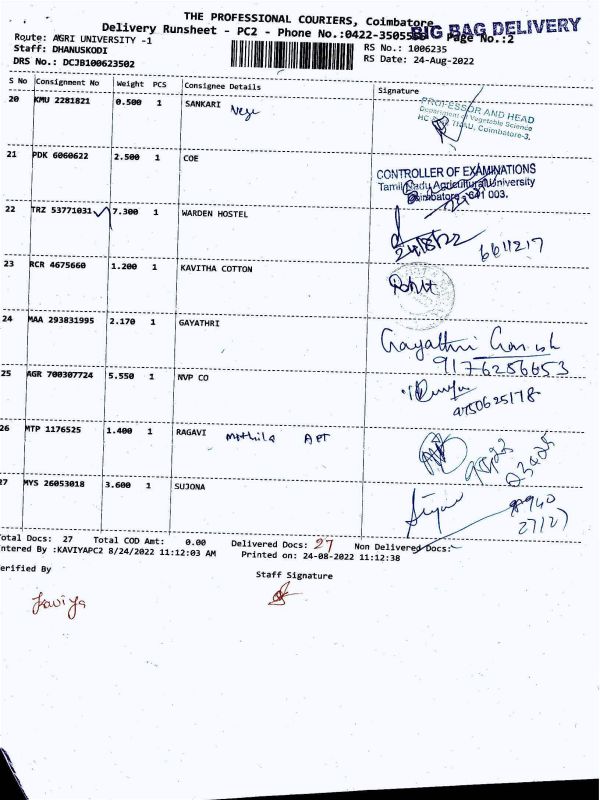 THE PROFESSIONAL COURIERS, Coimbatore
BIG BAG DELIVERY
Delivery Runsheet - PC2 - Phone No.:0422-3505 Page No.:2
Route: AGRI UNIVERSITY -1
RS No.: 1006235
Staff: DHANUSKODI
RS Date: 24-Aug-2022
DRS No.: DCJB100623502
S No Consignment No Weight PCS Consignee Details Signature
20 KMU 2281821 0.500 1 SANKARI
PROFESSOR AND HEAD
Department of Vegetable Science
TNAU, Coimbatore-3.
21 PDK 6060622 2.500 1 COE
CONTROLLER OF EXAMINATIONS
Tamil Nadu Agricultural University
Coimbatore - 641 003.
22 TRZ 53771031 7.300 1 WARDEN HOSTEL
24/8/22 6611217
23 RCR 4675660 1.200 1 KAVITHA COTTON
24 MAA 293831995 2.170 1 GAYATHRI
Gayathri Ganesh
9176286653
25 AGR 700307724 5.550 1 NVP CO
9750625178
26 MTP 1176525 1.400 1 RAGAVI APT
27 MYS 26053018 3.600 1 SUJONA
27127
Total Docs: 27 Total COD Amt: 0.00 Delivered Docs: 27 Non Delivered Docs:
Entered By :KAVIYAPC2 8/24/2022 11:12:03 AM Printed on: 24-08-2022 11:12:38
Verified By
Staff Signature
Kaviya